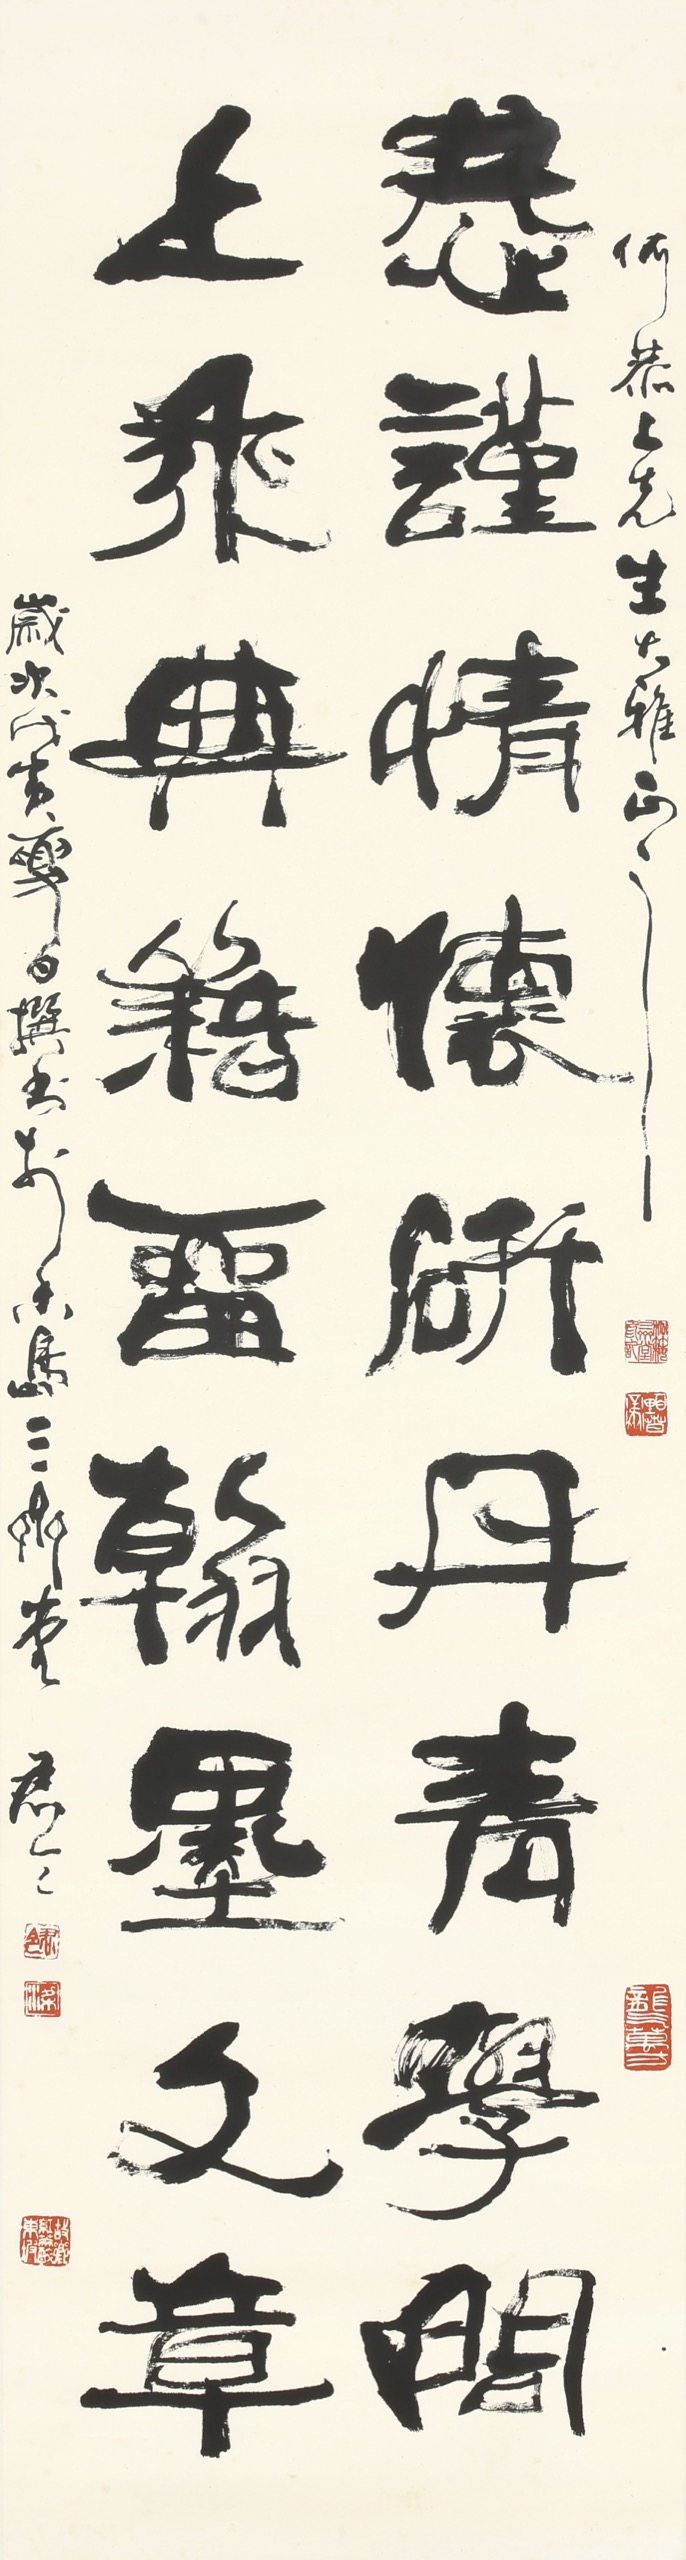 何恭上先生大雅正之
恭謹情懷研丹青學問
上乘典籍畱翰墨文章
歲次戊寅夏日撰書於香島三